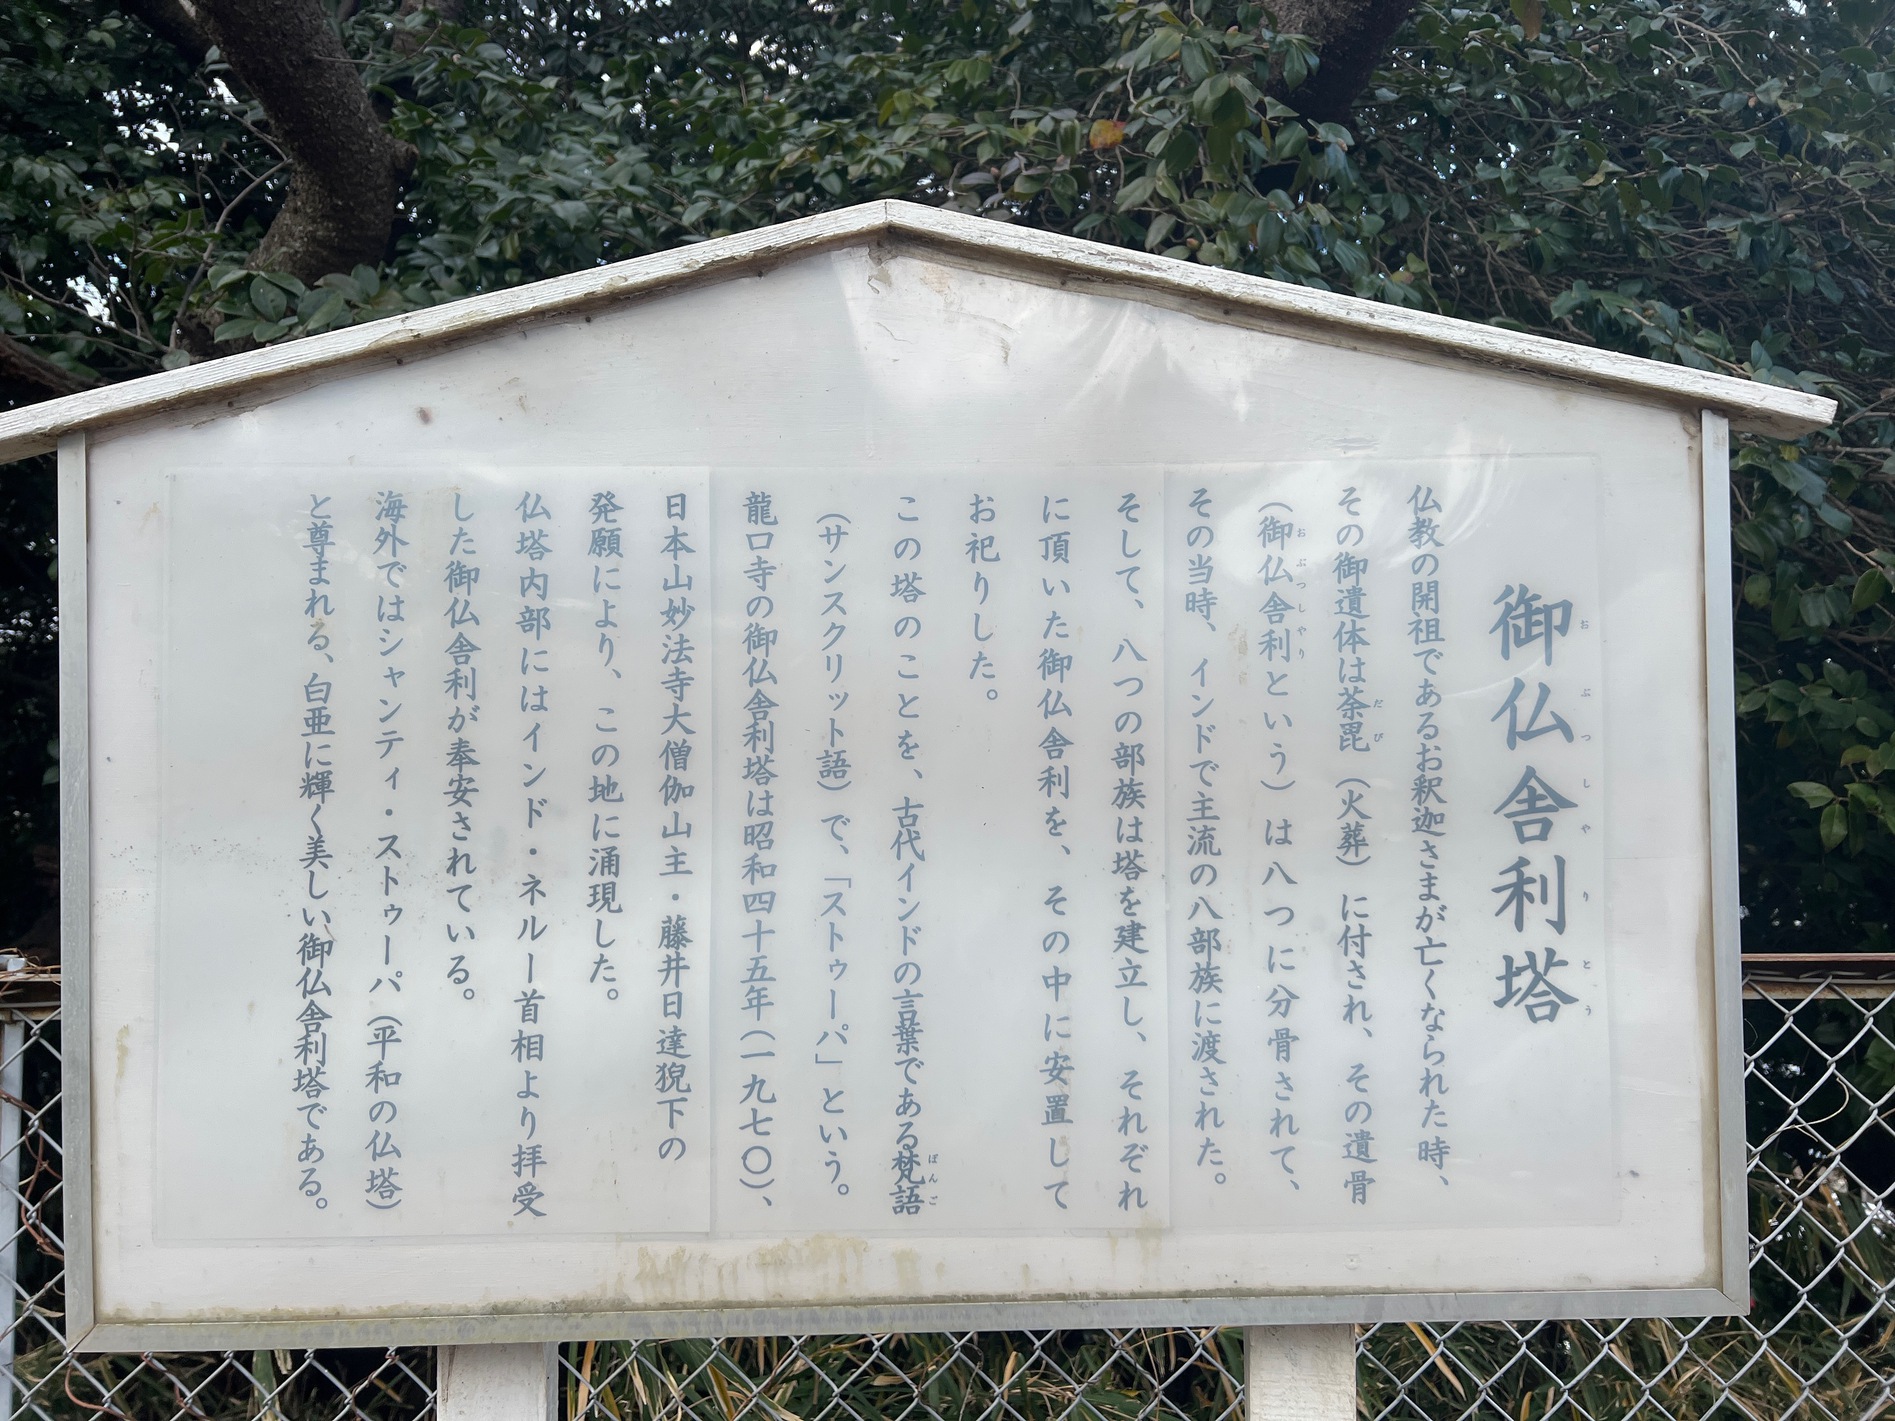 御仏舎利塔
おぶつしやりとう
仏教の開祖であるお釈迦さまが亡くなられた時、
その御遺体は荼毘（火葬）に付され、その遺骨
だび
（御仏舎利という）は八つに分骨されて、
おぶつしやり
その当時、インドで主流の八部族に渡された。
そして、八つの部族は塔を建立し、それぞれ
に頂いた御仏舎利を、その中に安置して
お祀りした。
この塔のことを、古代インドの言葉である梵語
ぼんご
（サンスクリット語）で、「ストゥーパ」という。
龍口寺の御仏舎利塔は昭和四十五年（一九七〇）、
日本山妙法寺大僧伽山主・藤井日達猊下の
発願により、この地に涌現した。
仏塔内部にはインド・ネルー首相より拝受
した御仏舎利が奉安されている。
海外ではシャンティ・ストゥーパ（平和の仏塔）
と尊まれる、白亜に輝く美しい御仏舎利塔である。